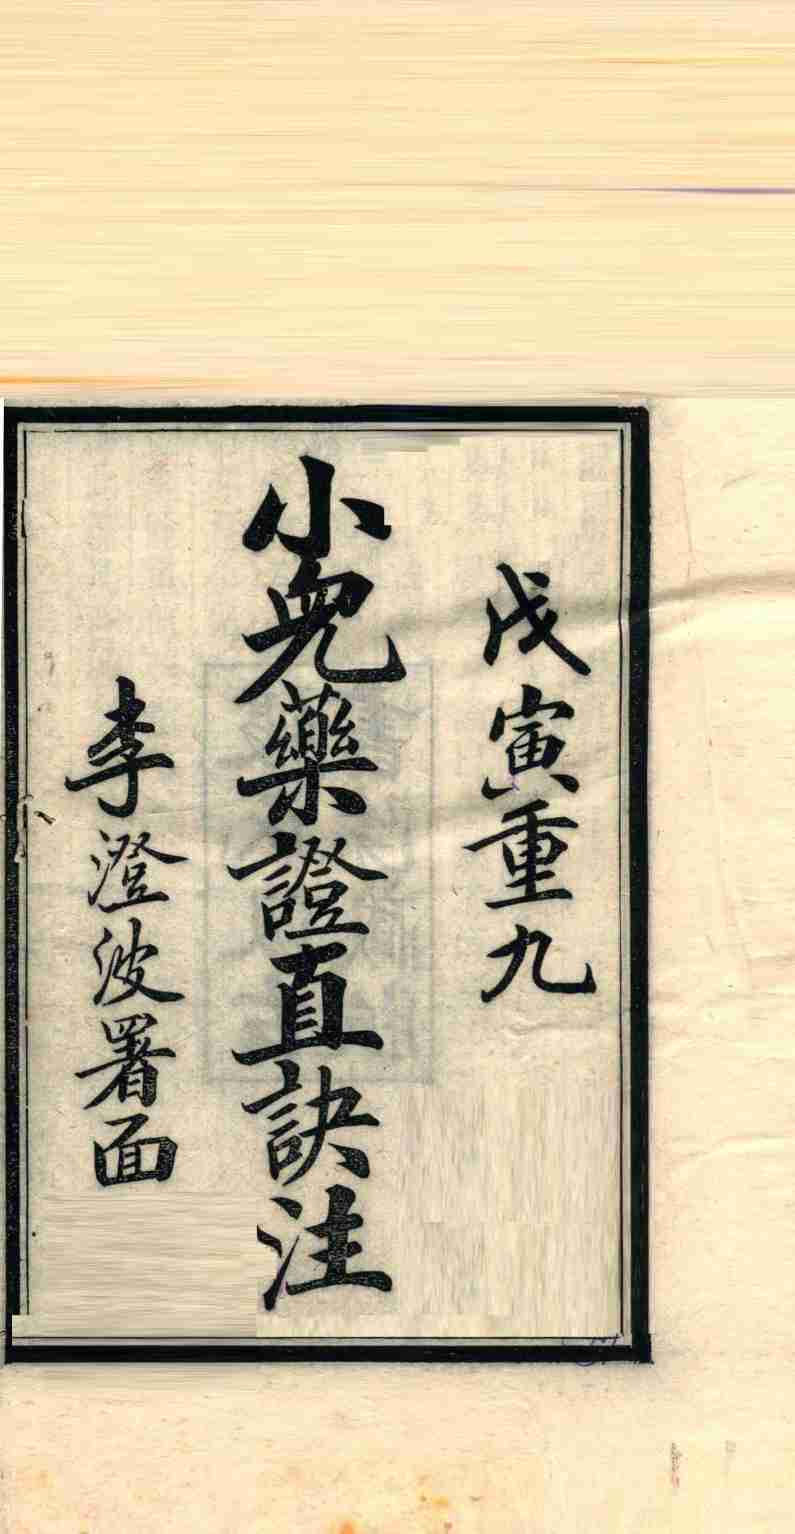 戊寅重九
小兒藥證直訣注
李澄波署面